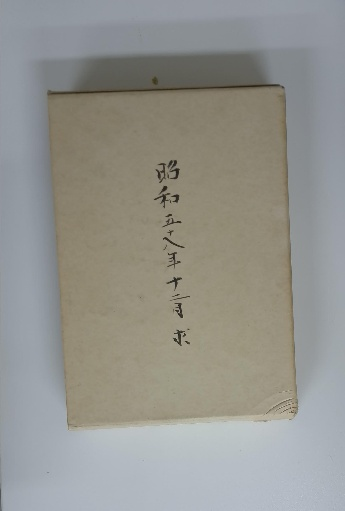 昭和五十八年十二月求